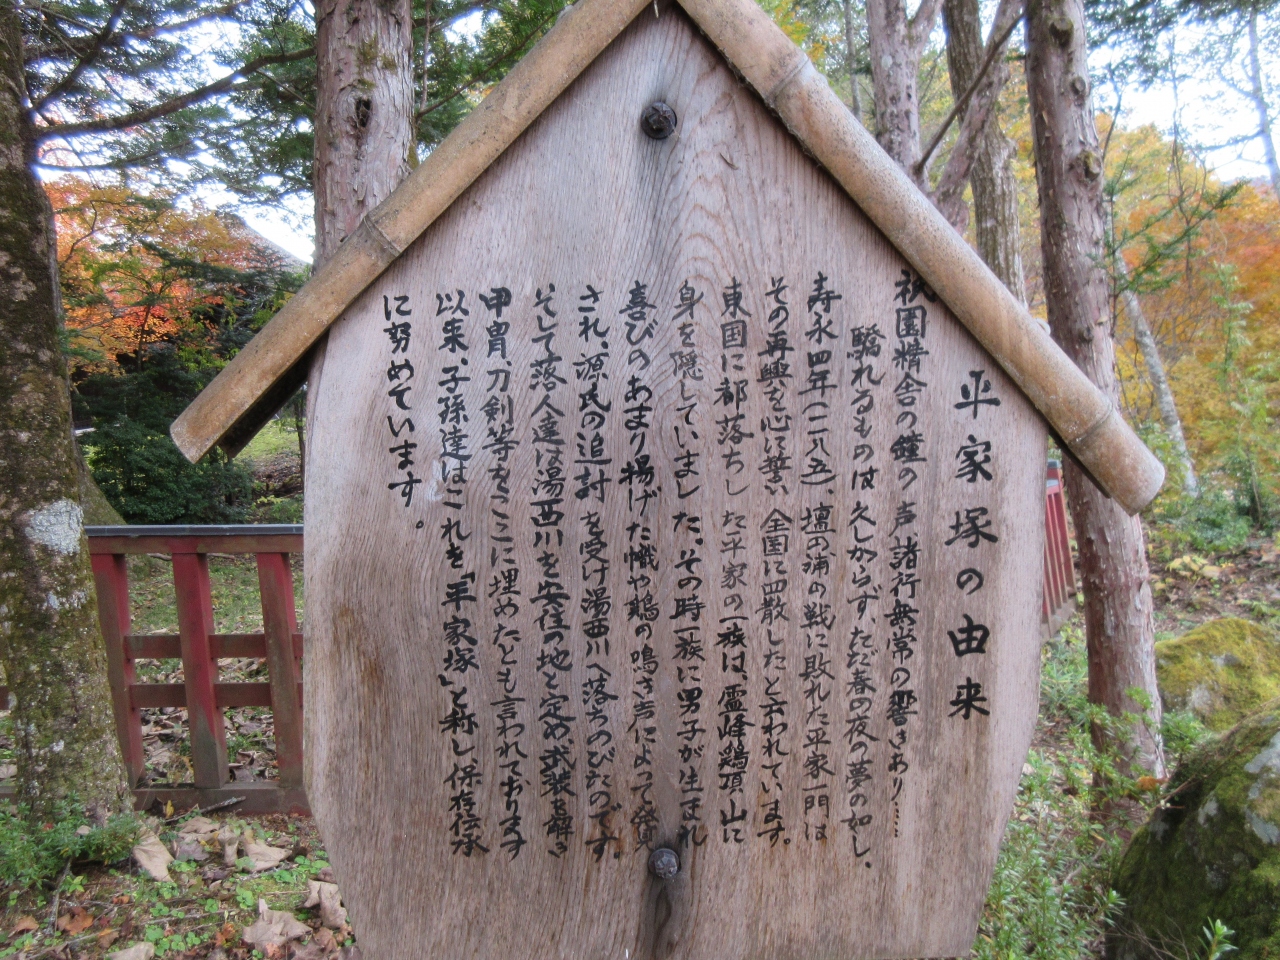 平家塚の由来
祇園精舎の鐘の声諸行無常の響きあり……
驕れるものは久しからず、ただ春の夜の夢の如し、
寿永四年(一一八五)、壇の浦の戦に敗れた平家一門は
その再興を心に誓い全国に四散したと云われています。
東国に都落ちした平家の一族は、霊峰鶏頂山に
身を隠していました。その時一族に男子が生まれ
喜びのあまり揚げた幟や鶏の鳴き声によって発見
され、源氏の追討を受け湯西川へ落ちのびたのです。
そして落人達は湯西川を安住の地と定め武装を解き
甲冑、刀剣等をここに埋めたとも言われております
以来、子孫達はこれを「平家塚」と称し、保存伝承
に努めています。